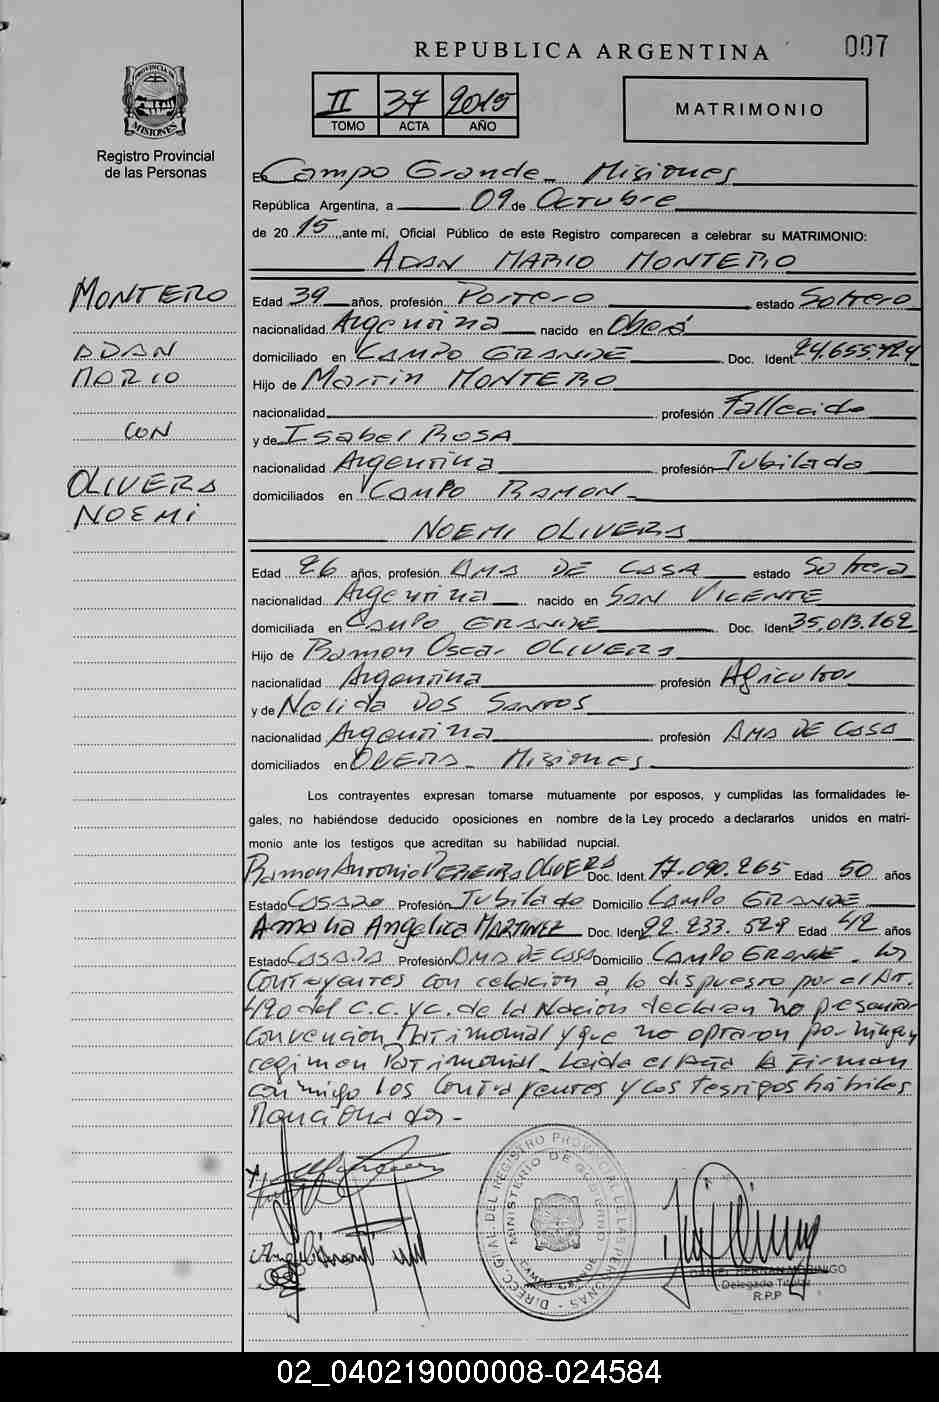 REPUBLICA ARGENTINA
007
II 37 2015
TOMO ACTA AÑO
MATRIMONIO
PROVINCIA DE MISIONES
Registro Provincial
de las Personas
En Campo Grande Misiones
República Argentina, a 09 de Octubre
de 20 15 ,ante mí, Oficial Público de este Registro comparecen a celebrar su MATRIMONIO:
ADAN MARIO MONTERO
MONTERO
ADAN
MARIO
CON
OLIVERA
NOEMI
Edad 39 años, profesión Portero estado Soltero
nacionalidad Argentina nacido en Oberá
domiciliado en CAMPO GRANDE Doc. Ident. 24.655.724
Hijo de Martin MONTERO
nacionalidad profesión Fallecido
y de Isabel ROSA
nacionalidad Argentina profesión Jubilada
domiciliados en CAMPO RAMON
NOEMI OLIVERA
Edad 26 años, profesión AMA DE CASA estado Soltera
nacionalidad Argentina nacido en SAN VICENTE
domiciliada en CAMPO GRANDE Doc. Ident. 35.013.162
Hijo de Ramon Oscar OLIVERA
nacionalidad Argentina profesión Agricultor
y de Nelida DOS SANTOS
nacionalidad Argentina profesión AMA DE CASA
domiciliados en OBERA Misiones
Los contrayentes expresan tomarse mutuamente por esposos, y cumplidas las formalidades le-
gales, no habiéndose deducido oposiciones en nombre de la Ley procedo a declararlos unidos en matri-
monio ante los testigos que acreditan su habilidad nupcial.
Ramon Antonio PEREIRA OLIVERA Doc. Ident. 17.090.265 Edad 50 años
Estado CASADO Profesión Jubilado Domicilio CAMPO GRANDE
Amalia Angelica MARTINEZ Doc. Ident. 22.233.529 Edad 42 años
Estado CASADA Profesión AMA DE CASA Domicilio CAMPO GRANDE. Los
Contrayentes con relacion a lo dispuesto por el Art.
420 del C.C. y C. de la Nacion declaran no presentar
Convencion Matrimonial y que no optaron por ningun
regimen Patrimonial. Leida el Acta la Firman
conmigo los Contrayentes y los testigos hábiles
Mencionados.-
DIRECC. GRAL. DEL REGISTRO PROVINCIAL DE LAS PERSONAS
MINISTERIO DE GOBIERNO
CAMPO GRANDE
DANIEL HERNAN MORINIGO
Delegado Titular
R.P.P
02_040219000008-024584